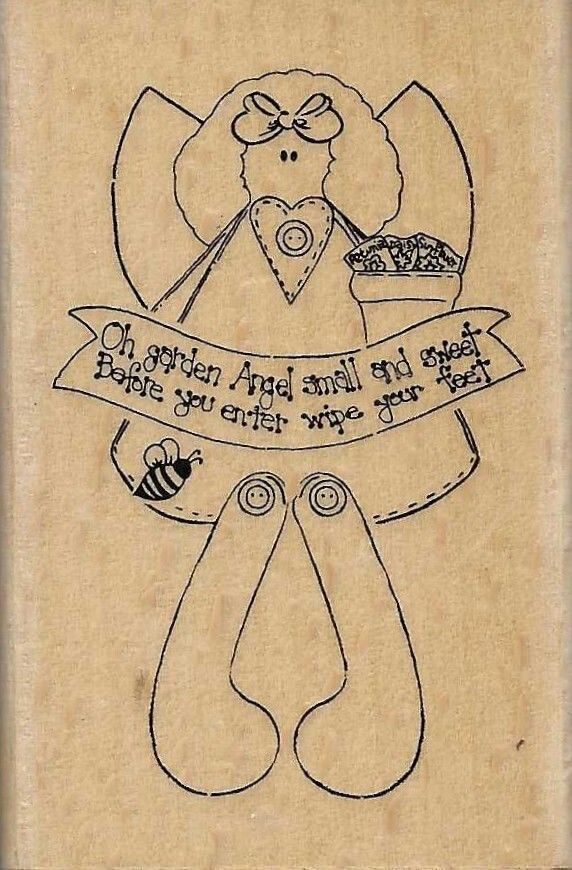 Petunia Daisy Sunflower
Oh garden Angel small and sweet
Before you enter wipe your feet